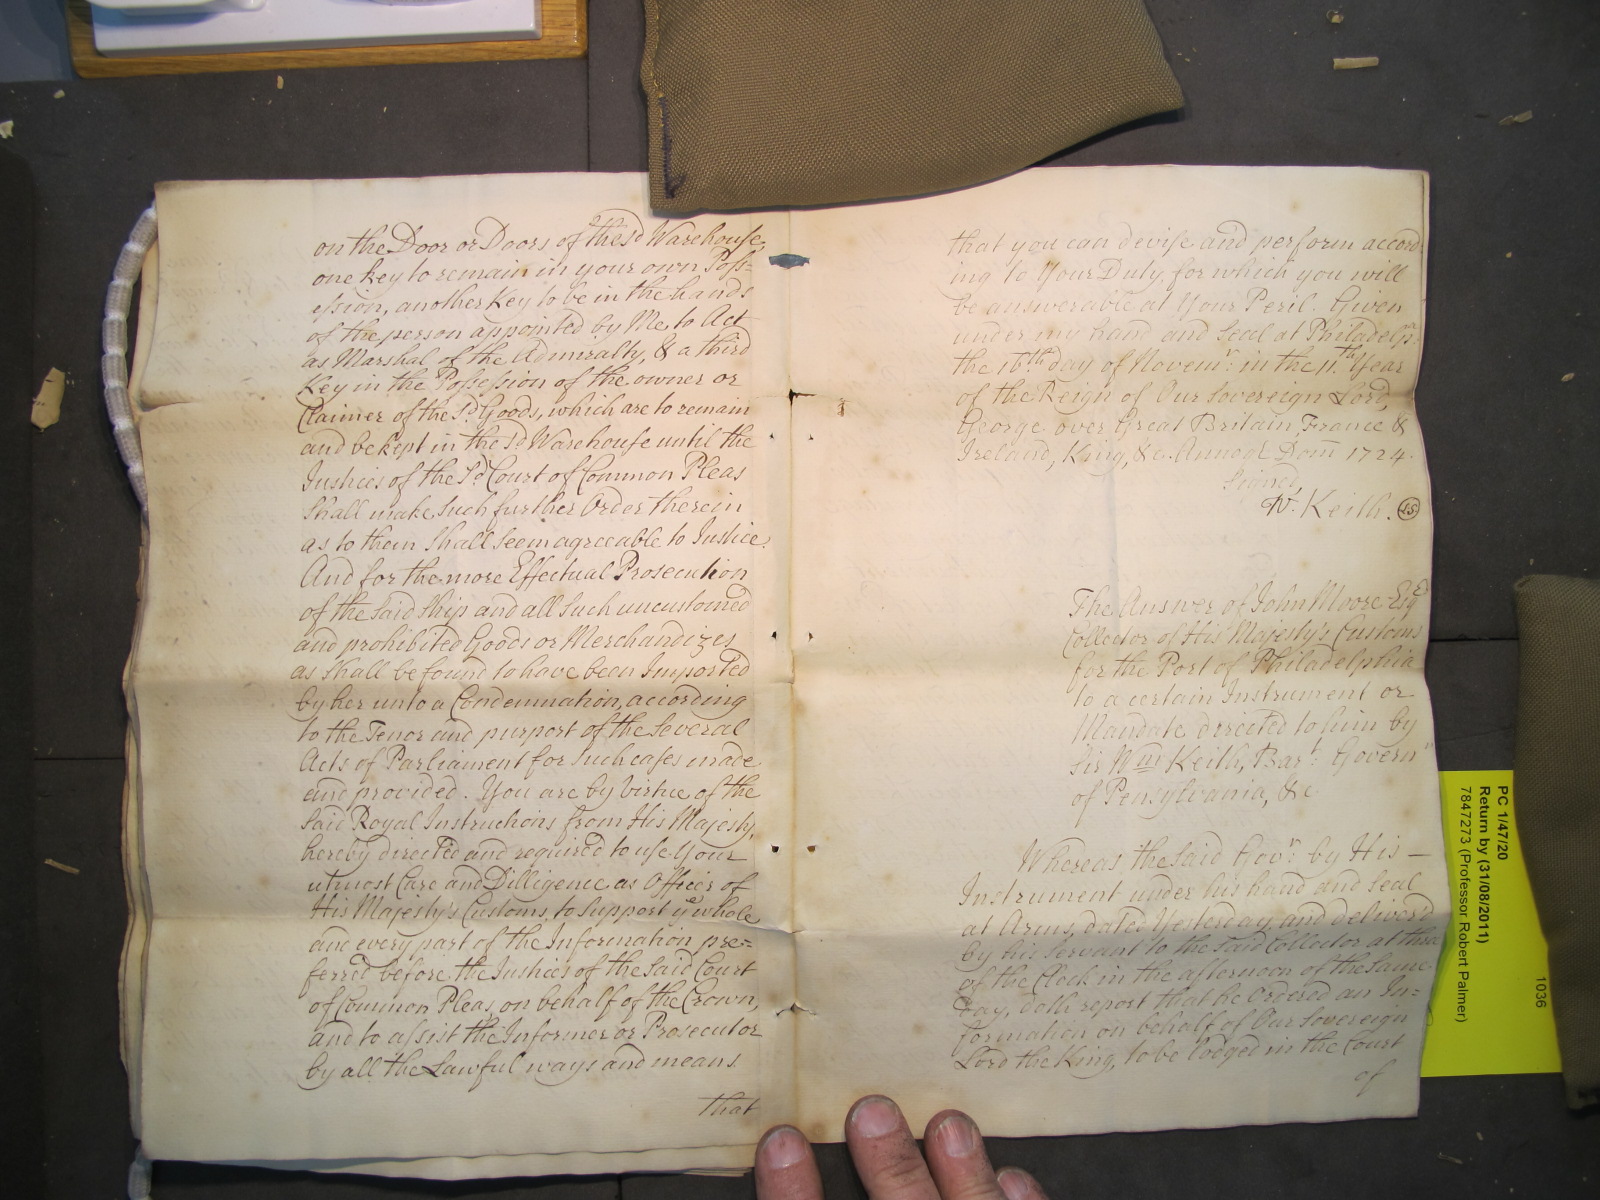 on the Door or Doors of the sd Warehouse,
one key to remain in your own Poss=
ession, another Key to be in the hands
of the person appointed by Me to Act
as Marshal of the Admiralty, & a third
Key in the Possession of the owner or
Claimer of the sd Goods, which are to remain
and be kept in the sd Warehouse until the
Justices of the sd Court of Common Pleas
Shall make Such further Order therein
as to them Shall Seem agreeable to Justice.
And for the more Effectual Prosecution
of the Said Ship and all Such uncustomed
and prohibited Goods or Merchandizes
as Shall be found to have been Imported
by her unto a Condemnation, according
to the Tenor and purport of the Several
Acts of Parliament for Such cases made
and provided. You are by Virtue of the
Said Royal Instructions from His Majesty,
hereby directed and required to use Your
utmost Care and Dilligence as Officer of
His Majesty's Customs, to Support ye whole
and every part of the Information pre=
ferred before the Justices of the Said Court
of Common Pleas, on behalf of the Crown,
and to assist the Informer or Prosecutor
by all the Lawful ways and means
that
that you can devise and perform accord
ing to Your Duty, for which you will
be answerable at Your Peril. Given
under my hand and Seal at Philadelpa.
the 16th day of Novemr. in the 11th Year
of the Reign of Our Sovereign Lord,
George over Great Britain, France &
Ireland, King, &c. Annoq Dom 1724.
Signed,
W. Keith. LS
The Answer of John Moore Esqr
Collector of His Majesty's Customs
for the Port of Philadelphia
to a certain Instrument or
Mandate directed to him by
Sir Wm Keith, Bart. Governr
of Pensylvania, &c
Whereas the Said Govr. by His
Instrument under his hand and Seal
at Arms, dated Yesterday, and deliver'd
by his Servant to the Said Collector at three
of the Clock in the afternoon of the Same
Day, doth report that he Ordered an In=
formation on behalf of Our Sovereign
Lord the King, to be lodged in the Court
of
PC 1/47/20
Return by (31/08/2011)
7847273 (Professor Robert Palmer)
1036